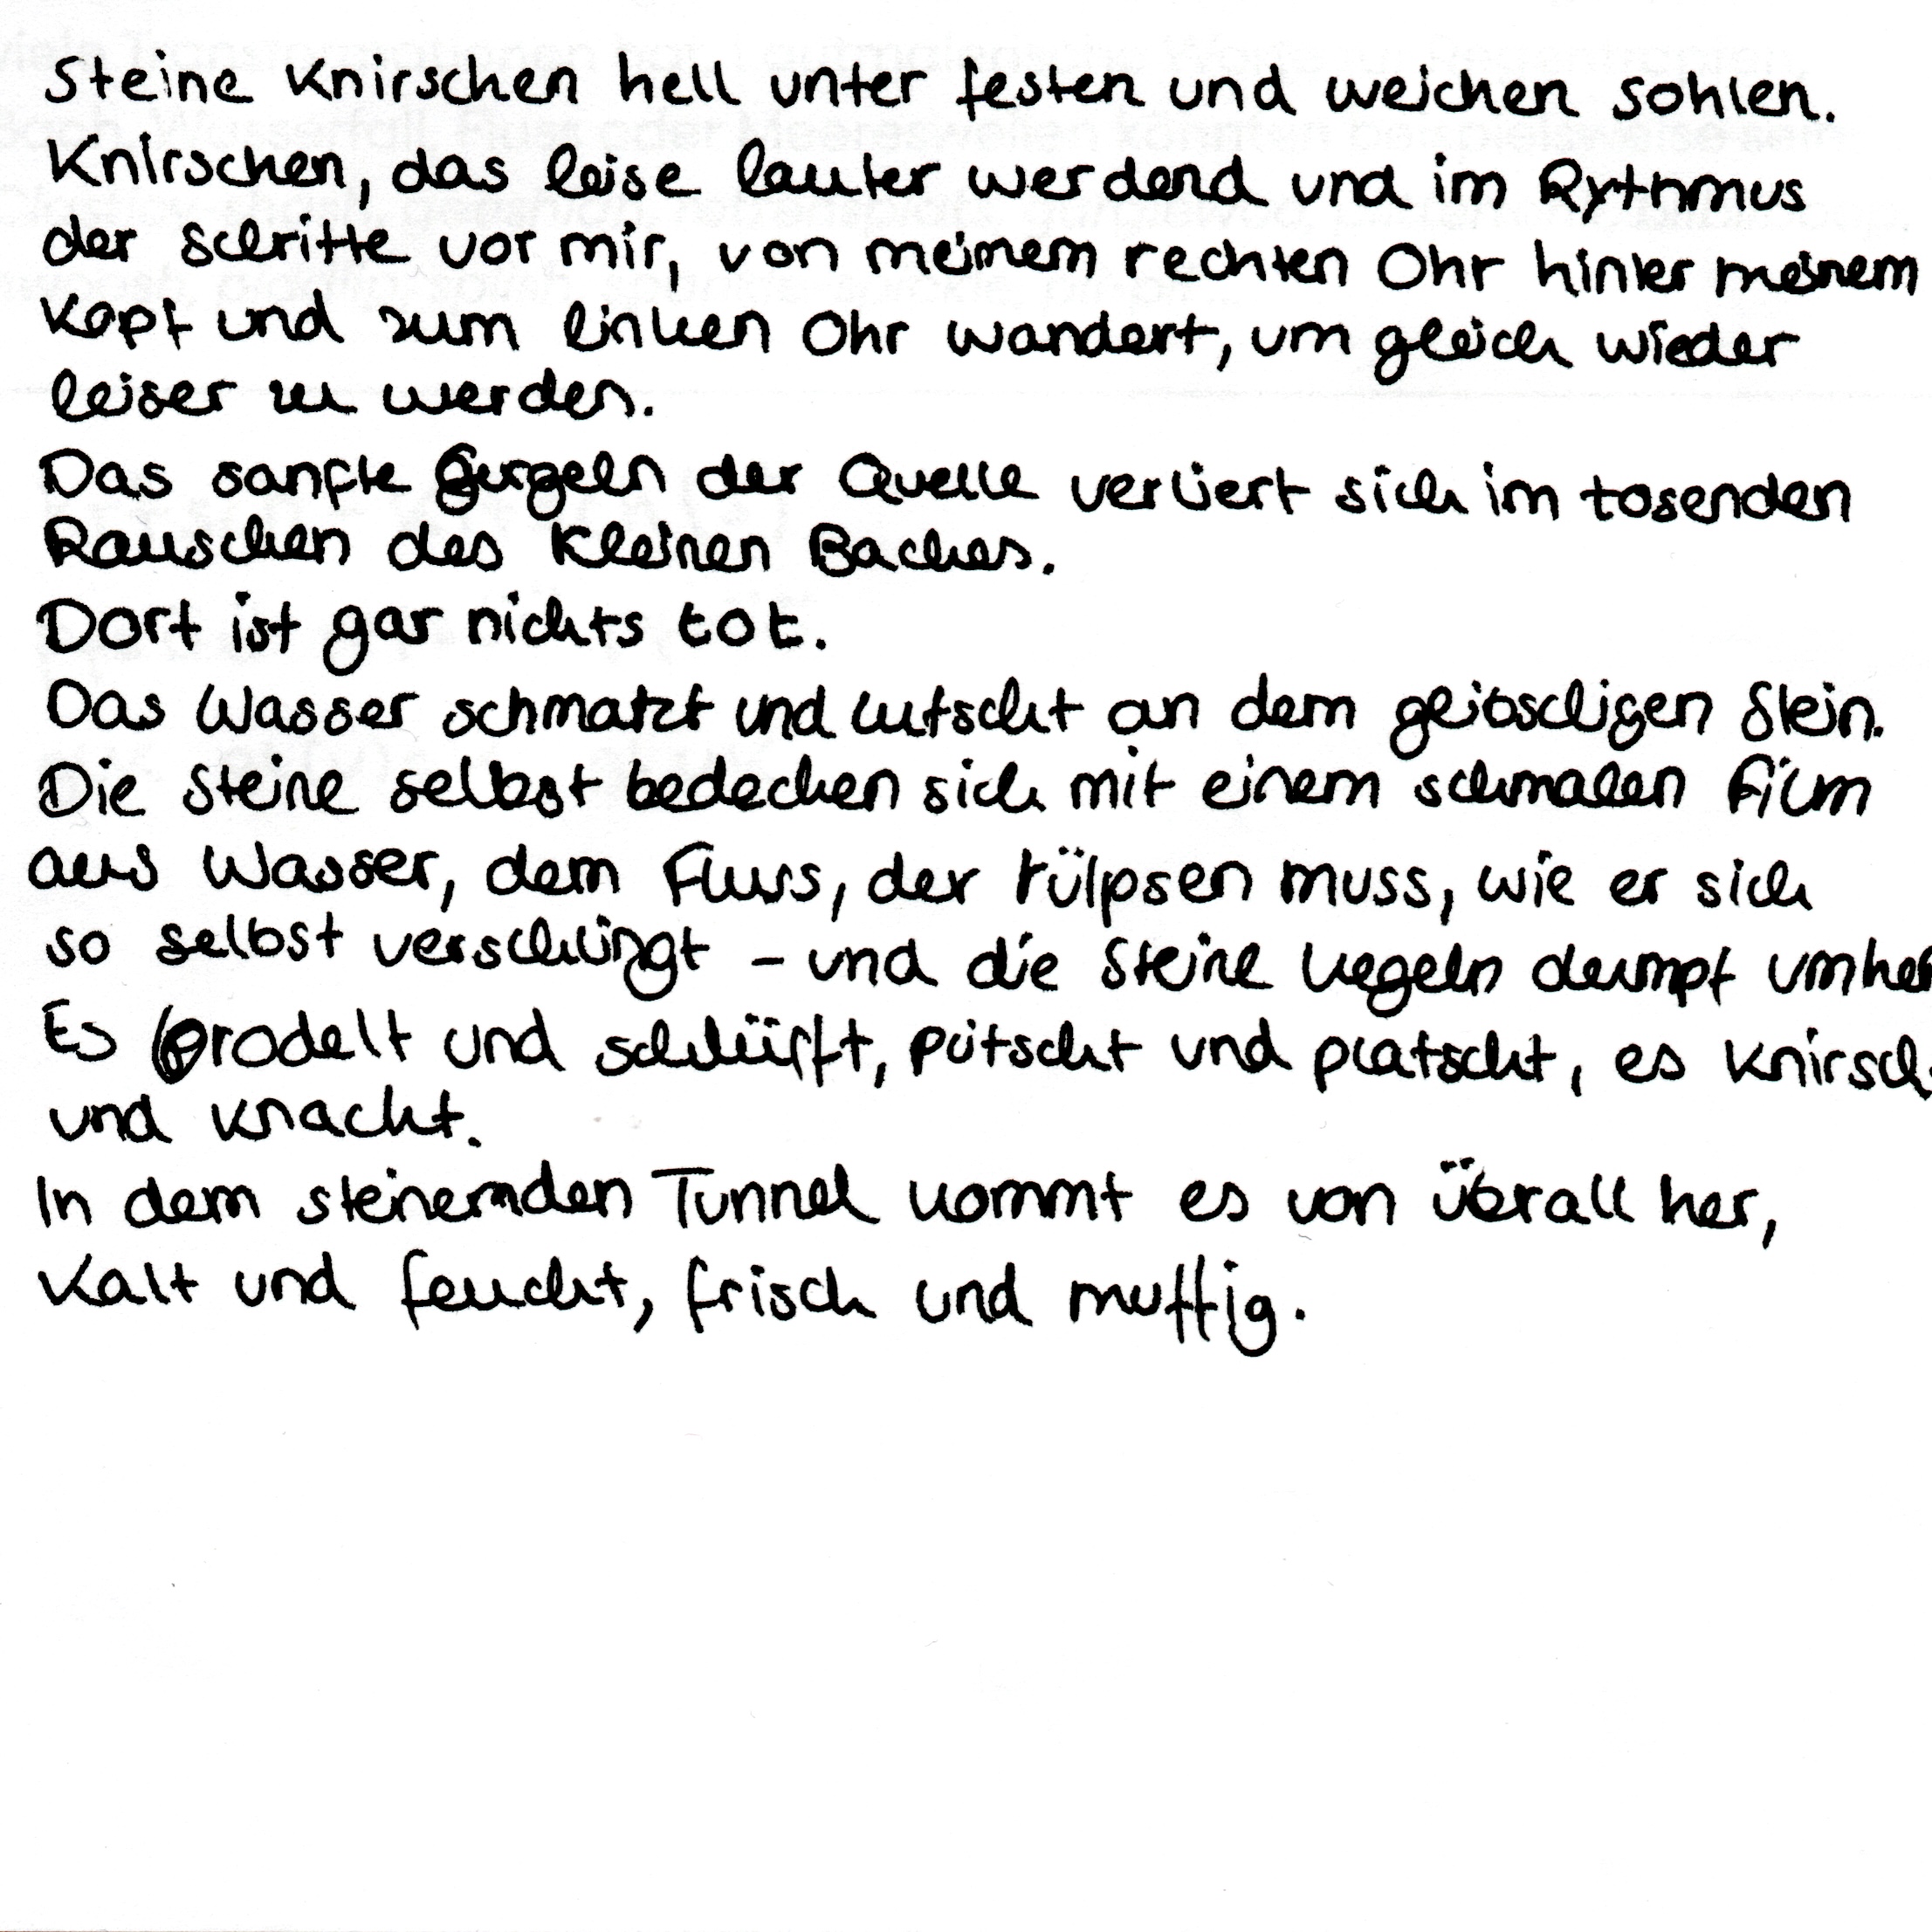 Steine Knirschen hell unter festen und weichen Sohlen.
Knirschen, das leise lauter werdend und im Rythmus
der Schritte vor mir, von meinem rechten Ohr hinter meinem
Kopf und zum linken Ohr wandert, um gleich wieder
leiser zu werden.
Das sanfte Gurgeln der Quelle verliert sich im tosenden
Rauschen des kleinen Baches.
Dort ist gar nichts tot.
Das Wasser schmatzt und lutscht an dem Stein.
Die Steine selbst bedecken sich mit einem schmalen Film
aus Wasser, dem Fluss, der rülpsen muss, wie er sich
so selbst verschlingt - und die Steine kegeln dumpf umher
Es brodelt und schlürft, pütscht und platscht, es knirsch
und knackt.
In dem steinernden Tunnel kommt es von überall her,
Kalt und feucht, frisch und muffig.